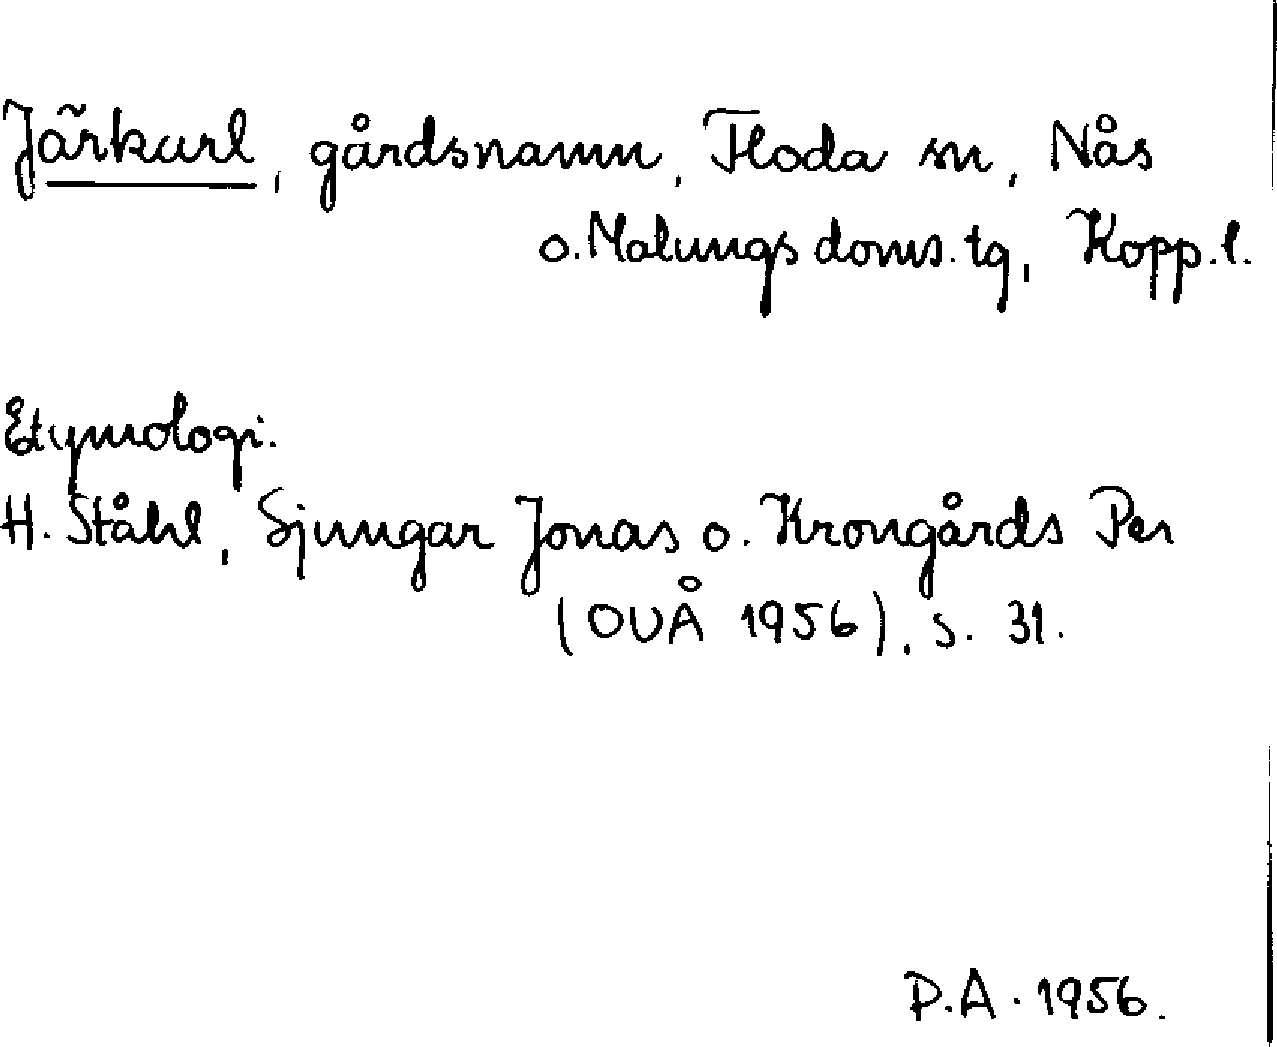 Järkarl, gårdsnamn, Floda sn, Nås
o. Malungs doms. tg, Kopp. l.
Etymologi.
H. Ståhl, Sjungar Jonas o. Krongårds Per
(OUÅ 1956), s. 31.
P.A. 1956.